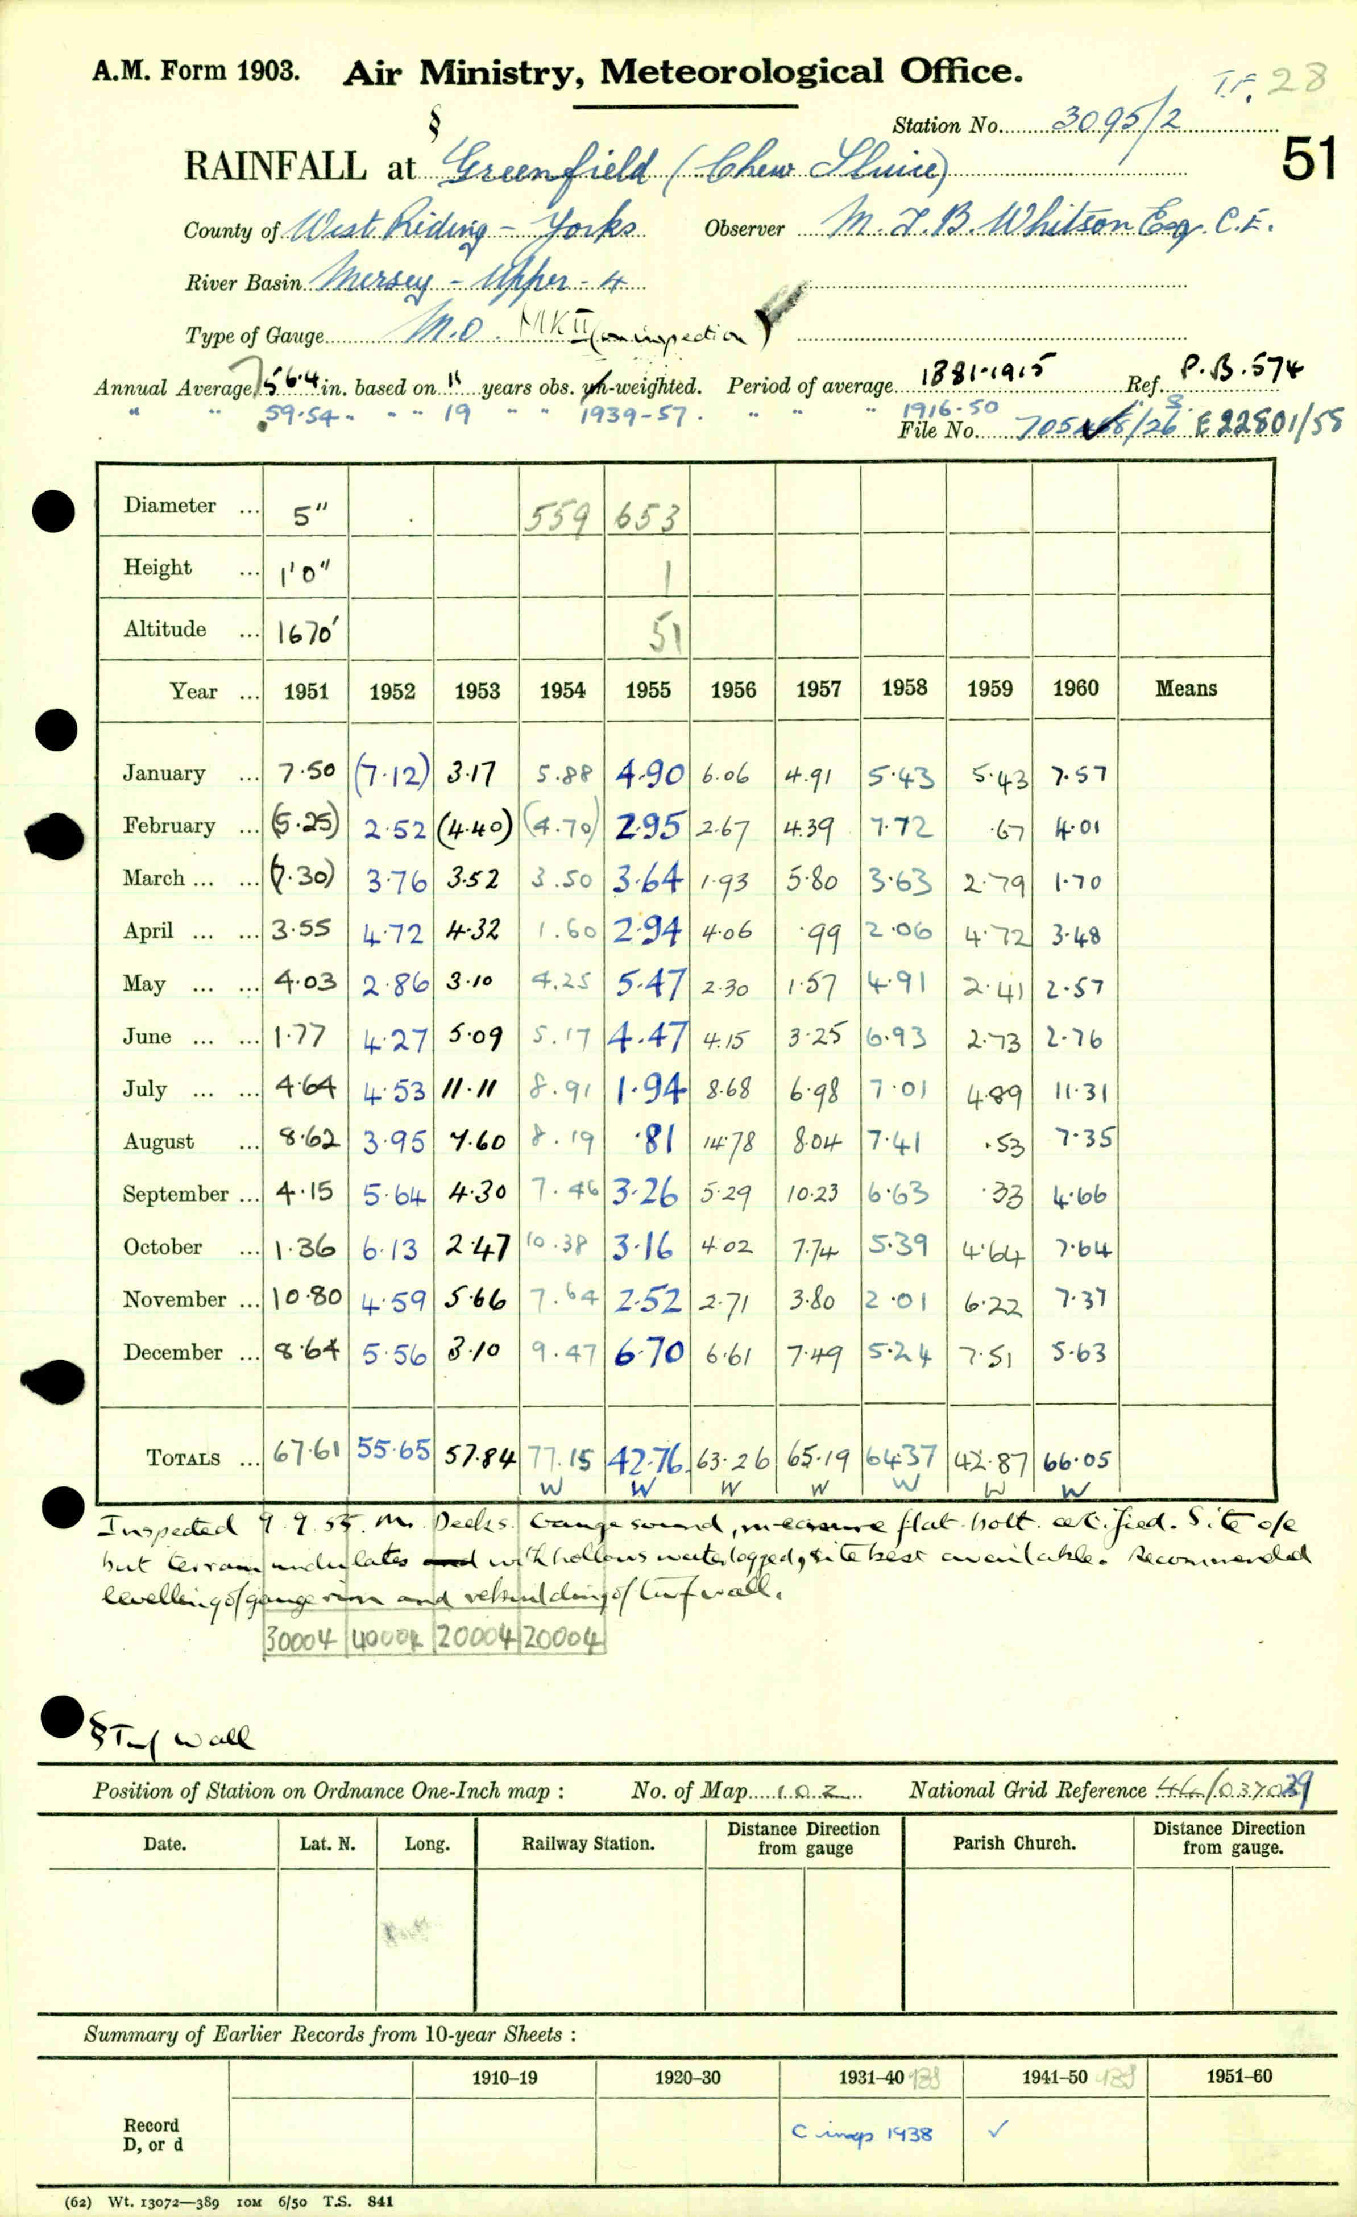 A.M. Form 1903. Air Ministry, Meteorological Office. T.F. 28
Station No. 3095/2
51
§
RAINFALL at Greenfield (Chew Sluice)
County of West Riding - Yorks Observer M. T. B. Whitson Esq. C.E.
River Basin Mersey - Upper - 4
Type of Gauge M.O. MK II (on inspection)
Annual Average 56.4 in. based on 11 years obs. -weighted. Period of average 1881-1915 Ref. P.B. 574
" " 59.54 " " " 19 " " 1939-57. " " " 1916-50
File No. /26 E22801/58
Diameter ... 5" 559 653
Height ... 1'0" 1
Altitude ... 1670' 51
Year ... 1951 1952 1953 1954 1955 1956 1957 1958 1959 1960 Means
January ... 7.50 (7.12) 3.17 5.88 4.90 6.06 4.91 5.43 5.43 7.57
February ... (5.25) 2.52 (4.40) (4.70) 2.95 2.67 4.39 7.72 .67 4.01
March ... ... (7.30) 3.76 3.52 3.50 3.64 1.93 5.80 3.63 2.79 1.70
April ... ... 3.55 4.72 4.32 1.60 2.94 4.06 .99 2.06 4.72 3.48
May ... ... 4.03 2.86 3.10 4.25 5.47 2.30 1.57 4.91 2.41 2.57
June ... ... 1.77 4.27 5.09 5.17 4.47 4.15 3.25 6.93 2.73 2.76
July ... ... 4.64 4.53 11.11 8.91 1.94 8.68 6.98 7.01 4.89 11.31
August ... 8.62 3.95 7.60 8.19 .81 14.78 8.04 7.41 .53 7.35
September ... 4.15 5.64 4.30 7.46 3.26 5.29 10.23 6.63 .33 4.66
October ... 1.36 6.13 2.47 10.38 3.16 4.02 7.74 5.39 4.64 7.64
November ... 10.80 4.59 5.66 7.64 2.52 2.71 3.80 2.01 6.22 7.37
December ... 8.64 5.56 3.10 9.47 6.70 6.61 7.49 5.24 7.51 5.63
TOTALS ... 67.61 55.65 57.84 77.15 42.76 63.26 65.19 64.37 42.87 66.05
W W W W W W W
Inspected 9.9.55. Mr Deeks. Gauge sound, measure flat bott. certified. Site o/e
but terrain undulates and with hollows waterlogged, site best available. Recommended
levelling of gauge rim and rebuilding of turf wall.
30004 40004 20004 20004
§ Turf Wall
Position of Station on Ordnance One-Inch map : No. of Map 102 National Grid Reference 44/037029
Date. Lat. N. Long. Railway Station. Distance from gauge Direction Parish Church. Distance Direction from gauge.
Summary of Earlier Records from 10-year Sheets :
1910-19 1920-30 1931-40 138 1941-50 138 1951-60
Record
D, or d C imp 1938 ✓
(62) Wt. 13072—389 10M 6/50 T.S. 841